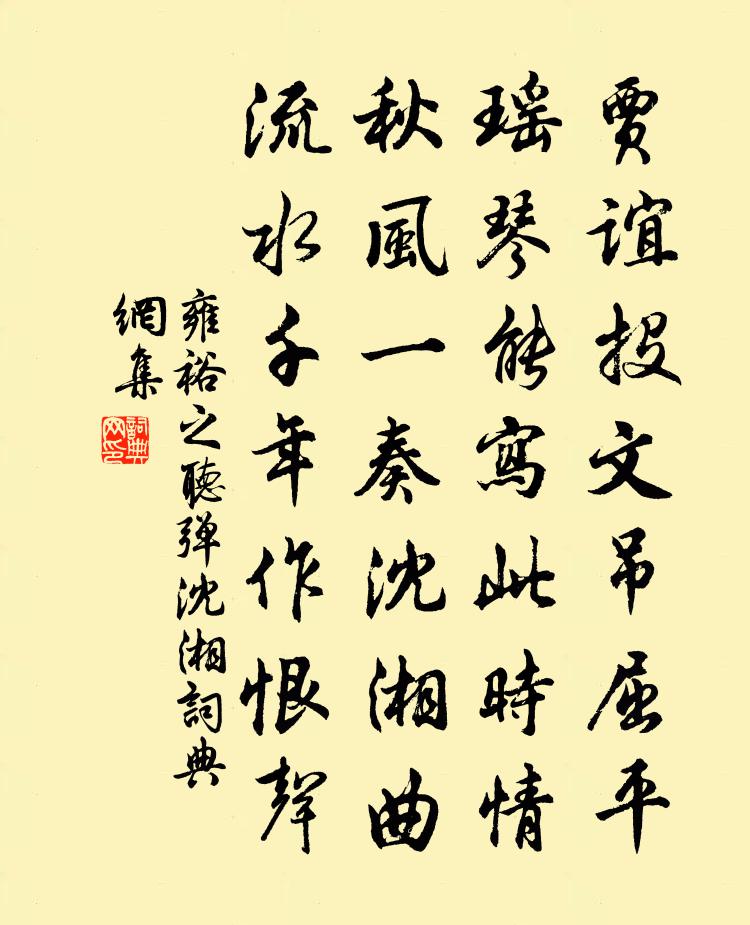 賈誼投文吊屈平
瑶琴能寫此時情
秋風一奏沈湘曲
流水千年作恨聲
雍裕之聽弹沈湘詞典
網集
詞典
网印